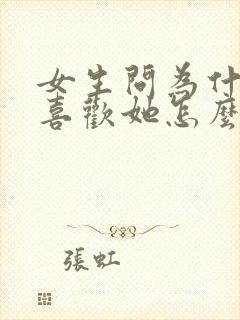 女生問為什
喜歡她怎麼
張虹